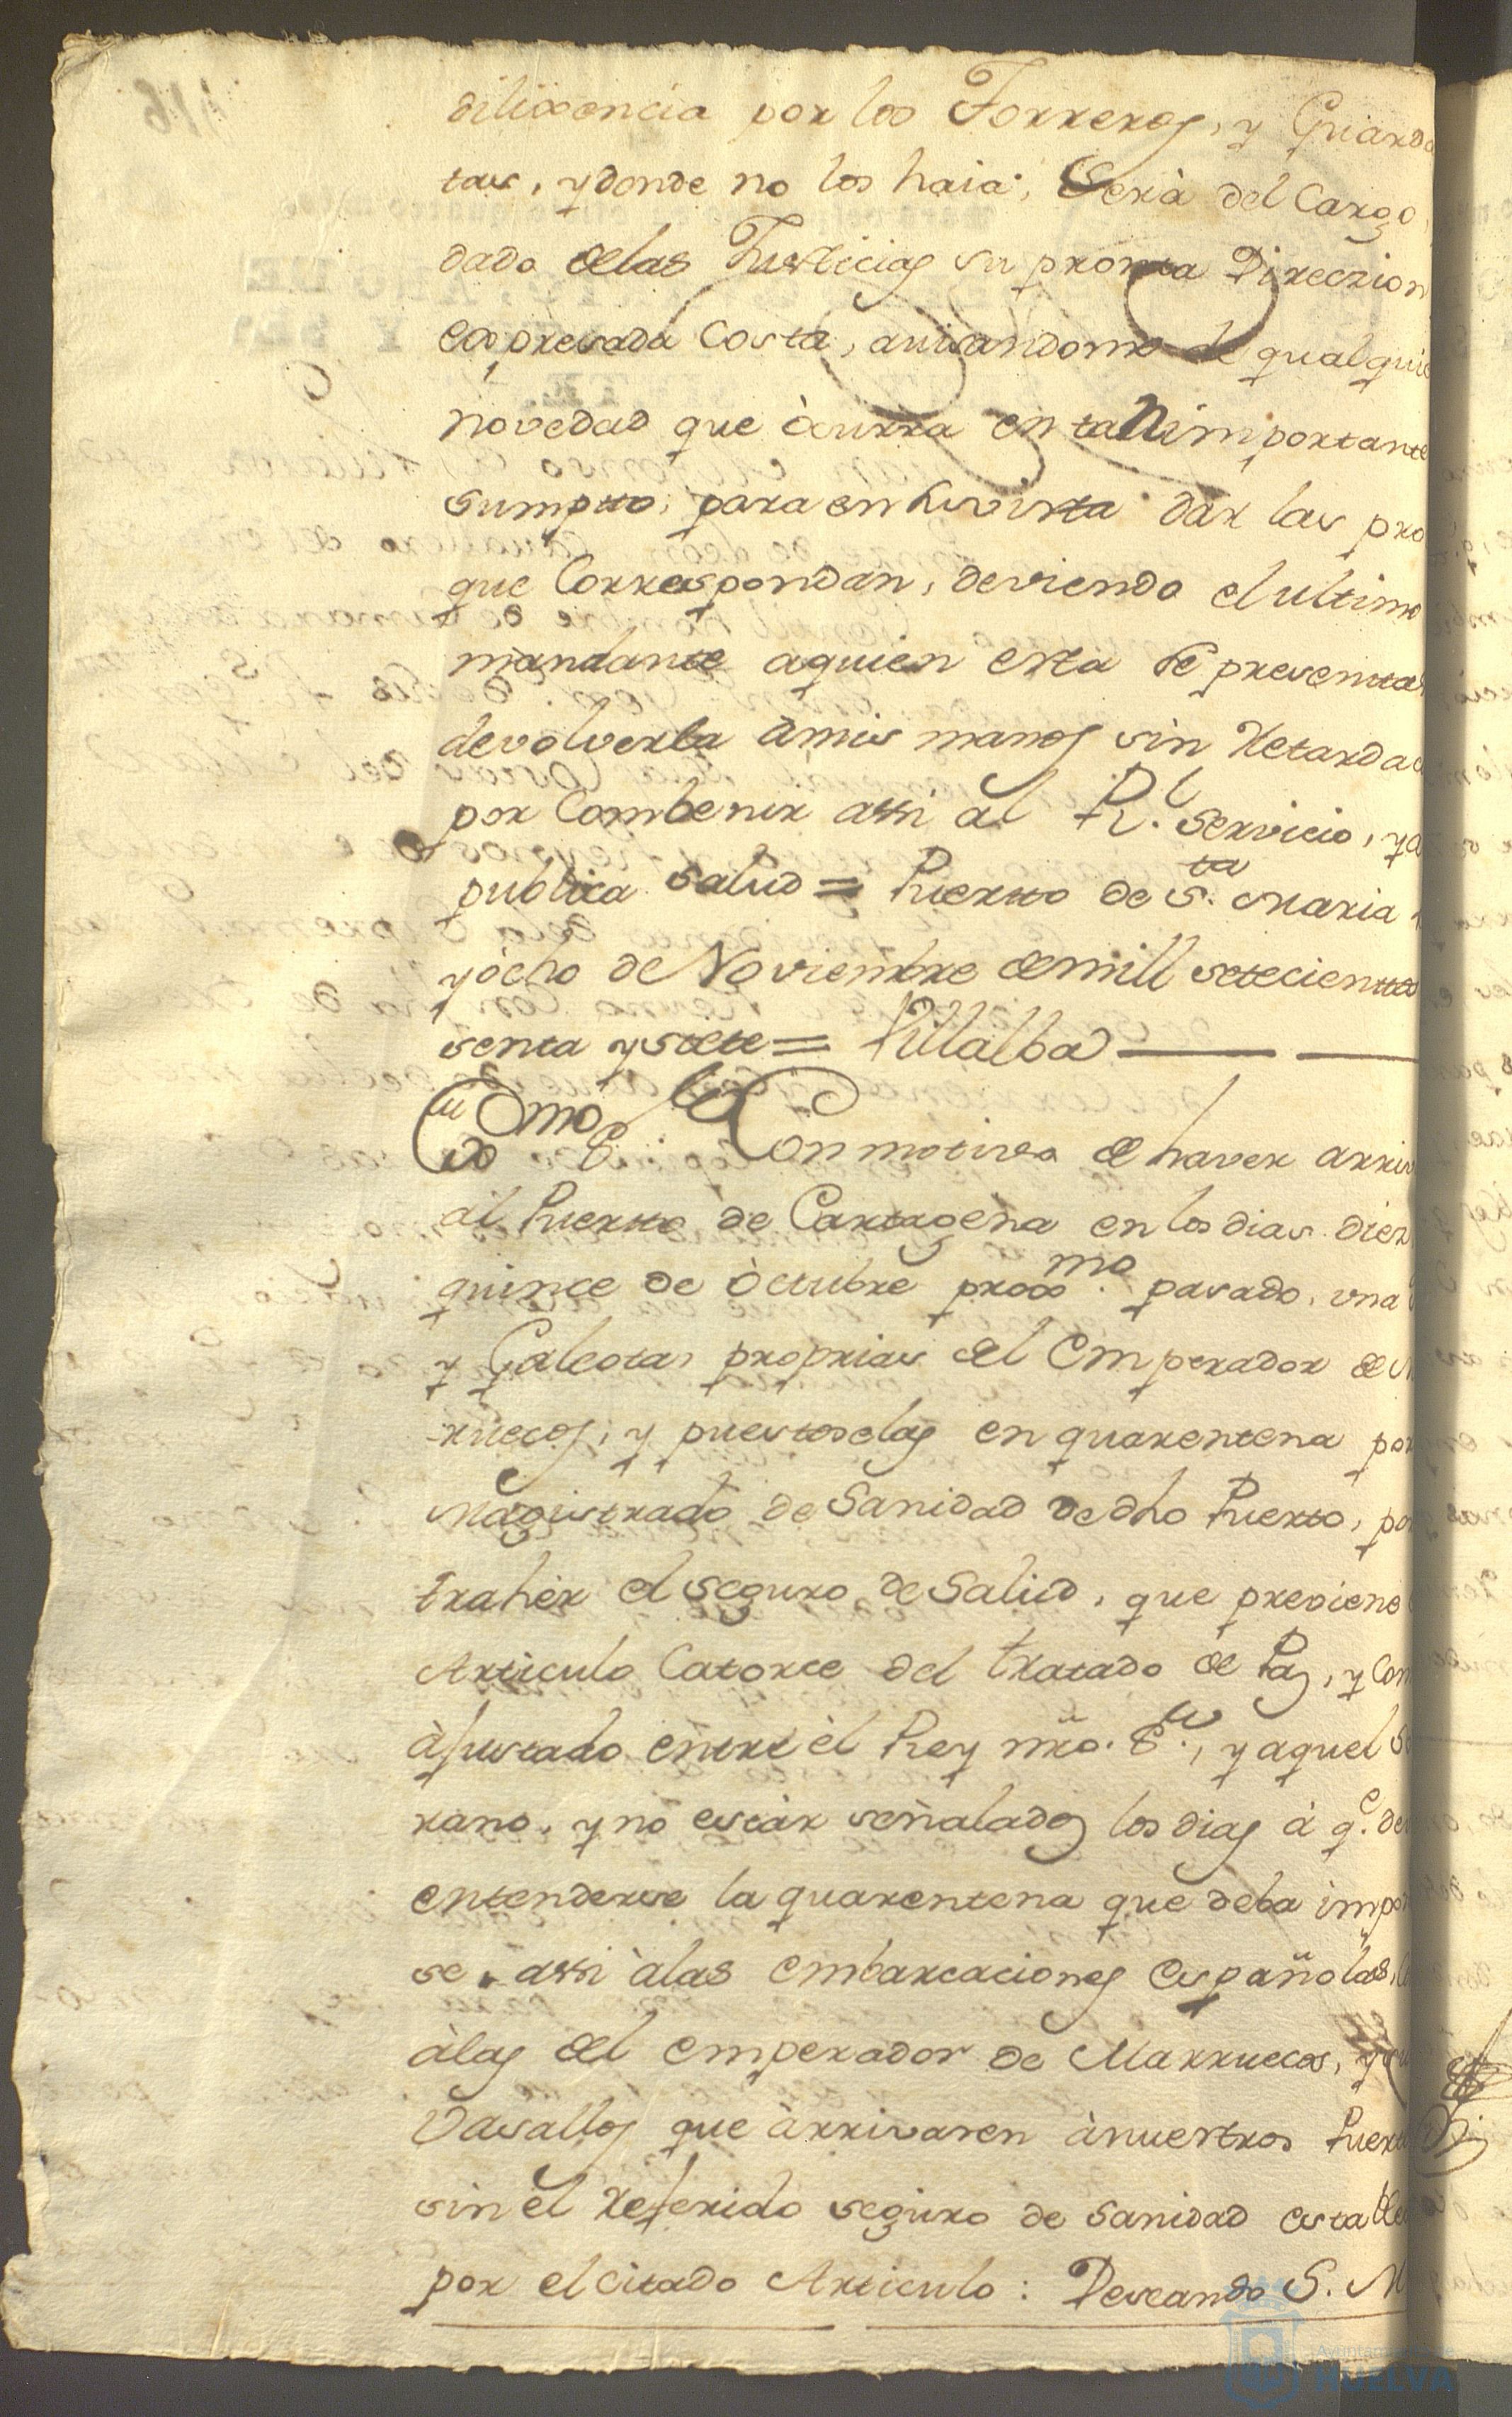 dilixencia por los Torreros, y Guarda
tas, y donde no los haia, Será del Cargo,
dado delas Justicias su pronta Direczion
expresada Costa, auisandome de qualquie
novedad que òcurra en tan importante
sumptto, para en su vista dar las pro
que Correspondan, deviendo el ultimo
mandante aquien esta se presentta
devolverla àmis manos sin Retarda
por Combenir assi al Rl. servicio, ya
publica salud = Puertto de Sta. Maria
y òcho de Noviembre demill setecienttos
senta y siete = Villalba
Exmo Sr. Con motivo de haver arriv
al Puertto de Cartagena en los dias diez
quince de òctubre proxmo. pasado, una
y Galeotas proprias del Emperador de M
rruecos, y puestoselas en quarentena por
Magistrado de Sanidad de dho Puerto, po
traher el seguro de Salud, que previene
Articulo Catorce del tratado de Paz, y Com
àjustado entre èl Rey nro. Sr., y aquel So
rano, y no estàr señalados los dias à qe. de
entenderse la quarentena que deba impo
se, assi àlas embarcaciones españolas,
àlas del emperador de Marruecos, y su
Vasallos que àrrivaren ànuestros Puert
sin èl Referido seguro de sanidad estable
por el citado Articulo: Deseando S. M
116
Ayuntamiento
HUELVA